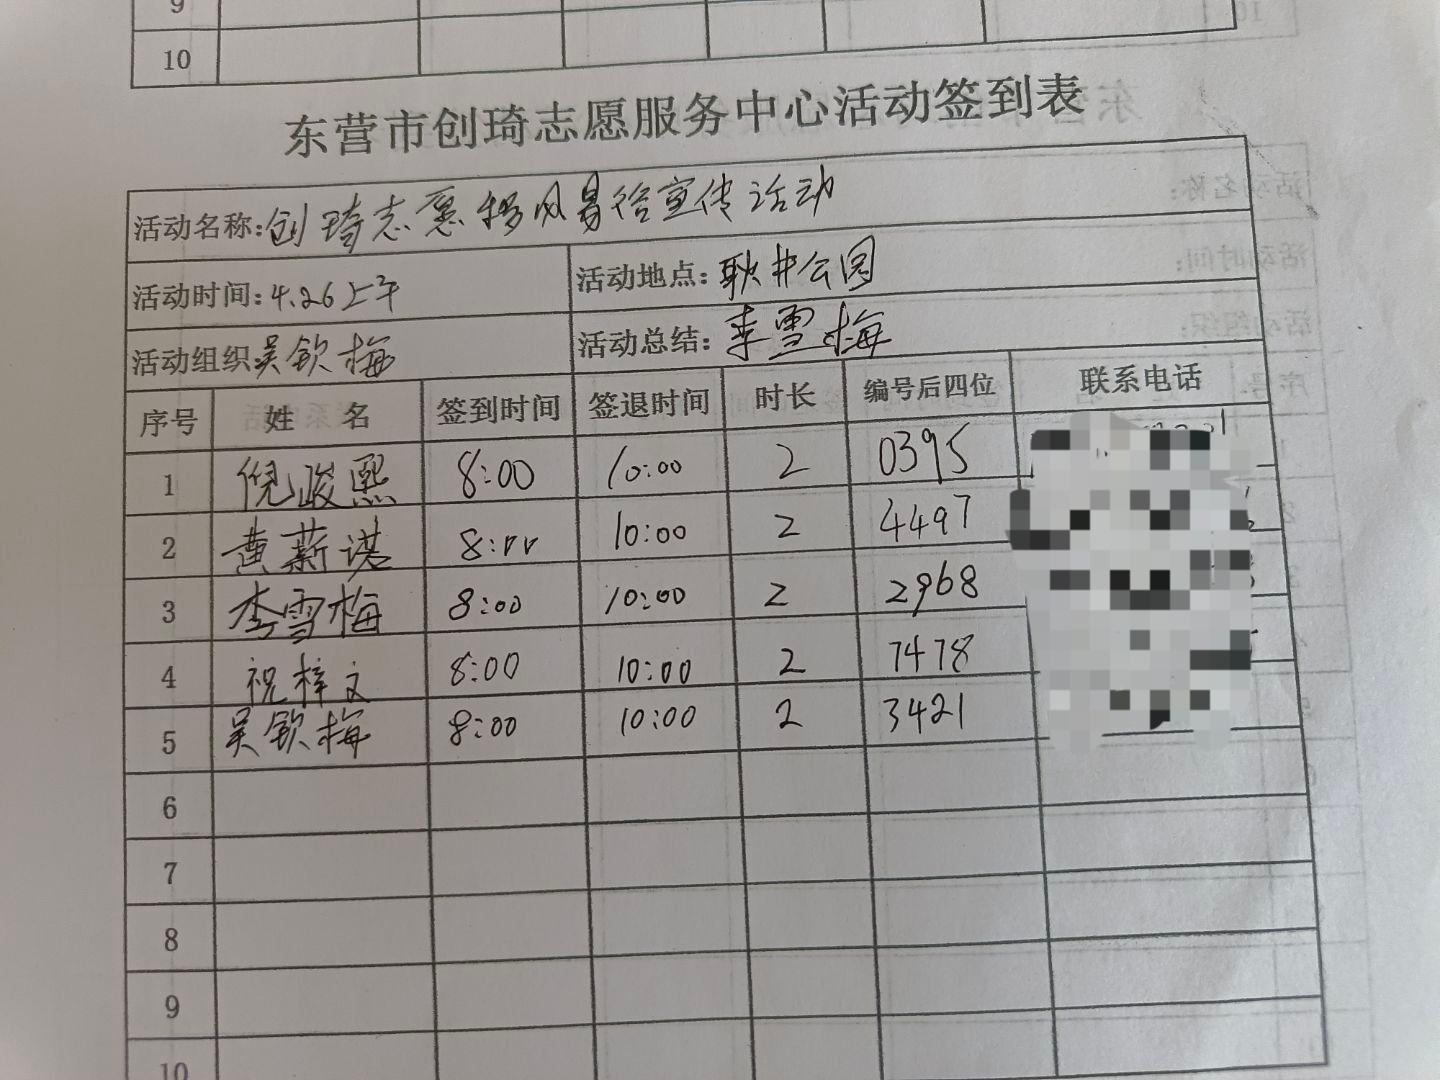 9
10
东营市创琦志愿服务中心活动签到表
活动名称:创琦志愿移风易俗宣传活动
活动时间:4.26上午 活动地点:耿井公园
活动组织吴钦梅 活动总结:李雪梅
序号 姓 名 签到时间 签退时间 时长 编号后四位 联系电话
1 倪峻熙 8:00 10:00 2 0395
2 黄薪谌 8:00 10:00 2 4497
3 李雪梅 8:00 10:00 2 2968
4 祝梓文 8:00 10:00 2 7478
5 吴钦梅 8:00 10:00 2 3421
6
7
8
9
10